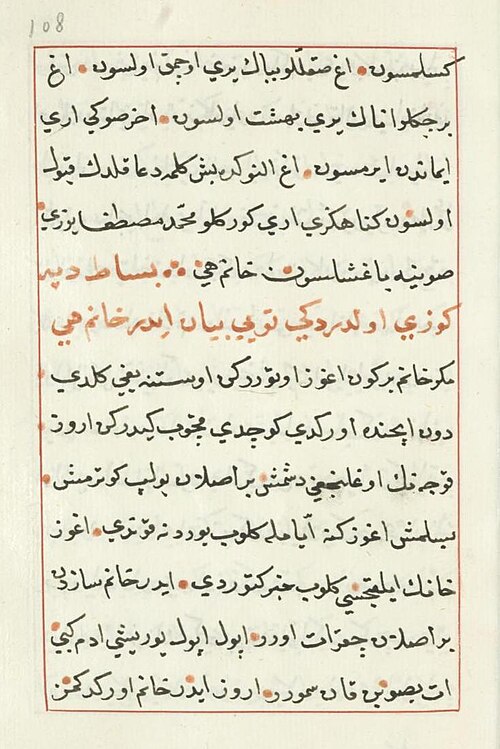 108
كسلمسون اغ صقللو بباك يري اوجمق اولسون اغ
برجكلو اناك يري بهشت اولسون اخر صوكي اري
ايماندن ايرمسون اغ النوكده بش كلمه دعا قلدك قبول
اولسون كناهكزي اري كوركلو محمد مصطفا يوزي
صوينه باغشلسون خانم هي بساط دپه
كوزي اولدردكي بويي بيان ايدر خانم هي
مكر خانم بركون اغوز اوتوررکن اوستنه يغي كلدي
دون ايچنده اوركدي كوچدي قچوب كيدركن اروز
قوجه نك اوغلنجغي دشمش بر اصلان بولب كوترمش
بسلمش اغوز كنه ايامله كلوب يوردنه قوندي اغوز
خانك ايلقجيسي كلوب خبر كتوردي ايدر خانم سازدن
بر اصلان چقر ات اورر اپول اپول يوريشي ادم كبي
ات بصوبن قان سمورر اروز ايدر خانم اوركدكمن